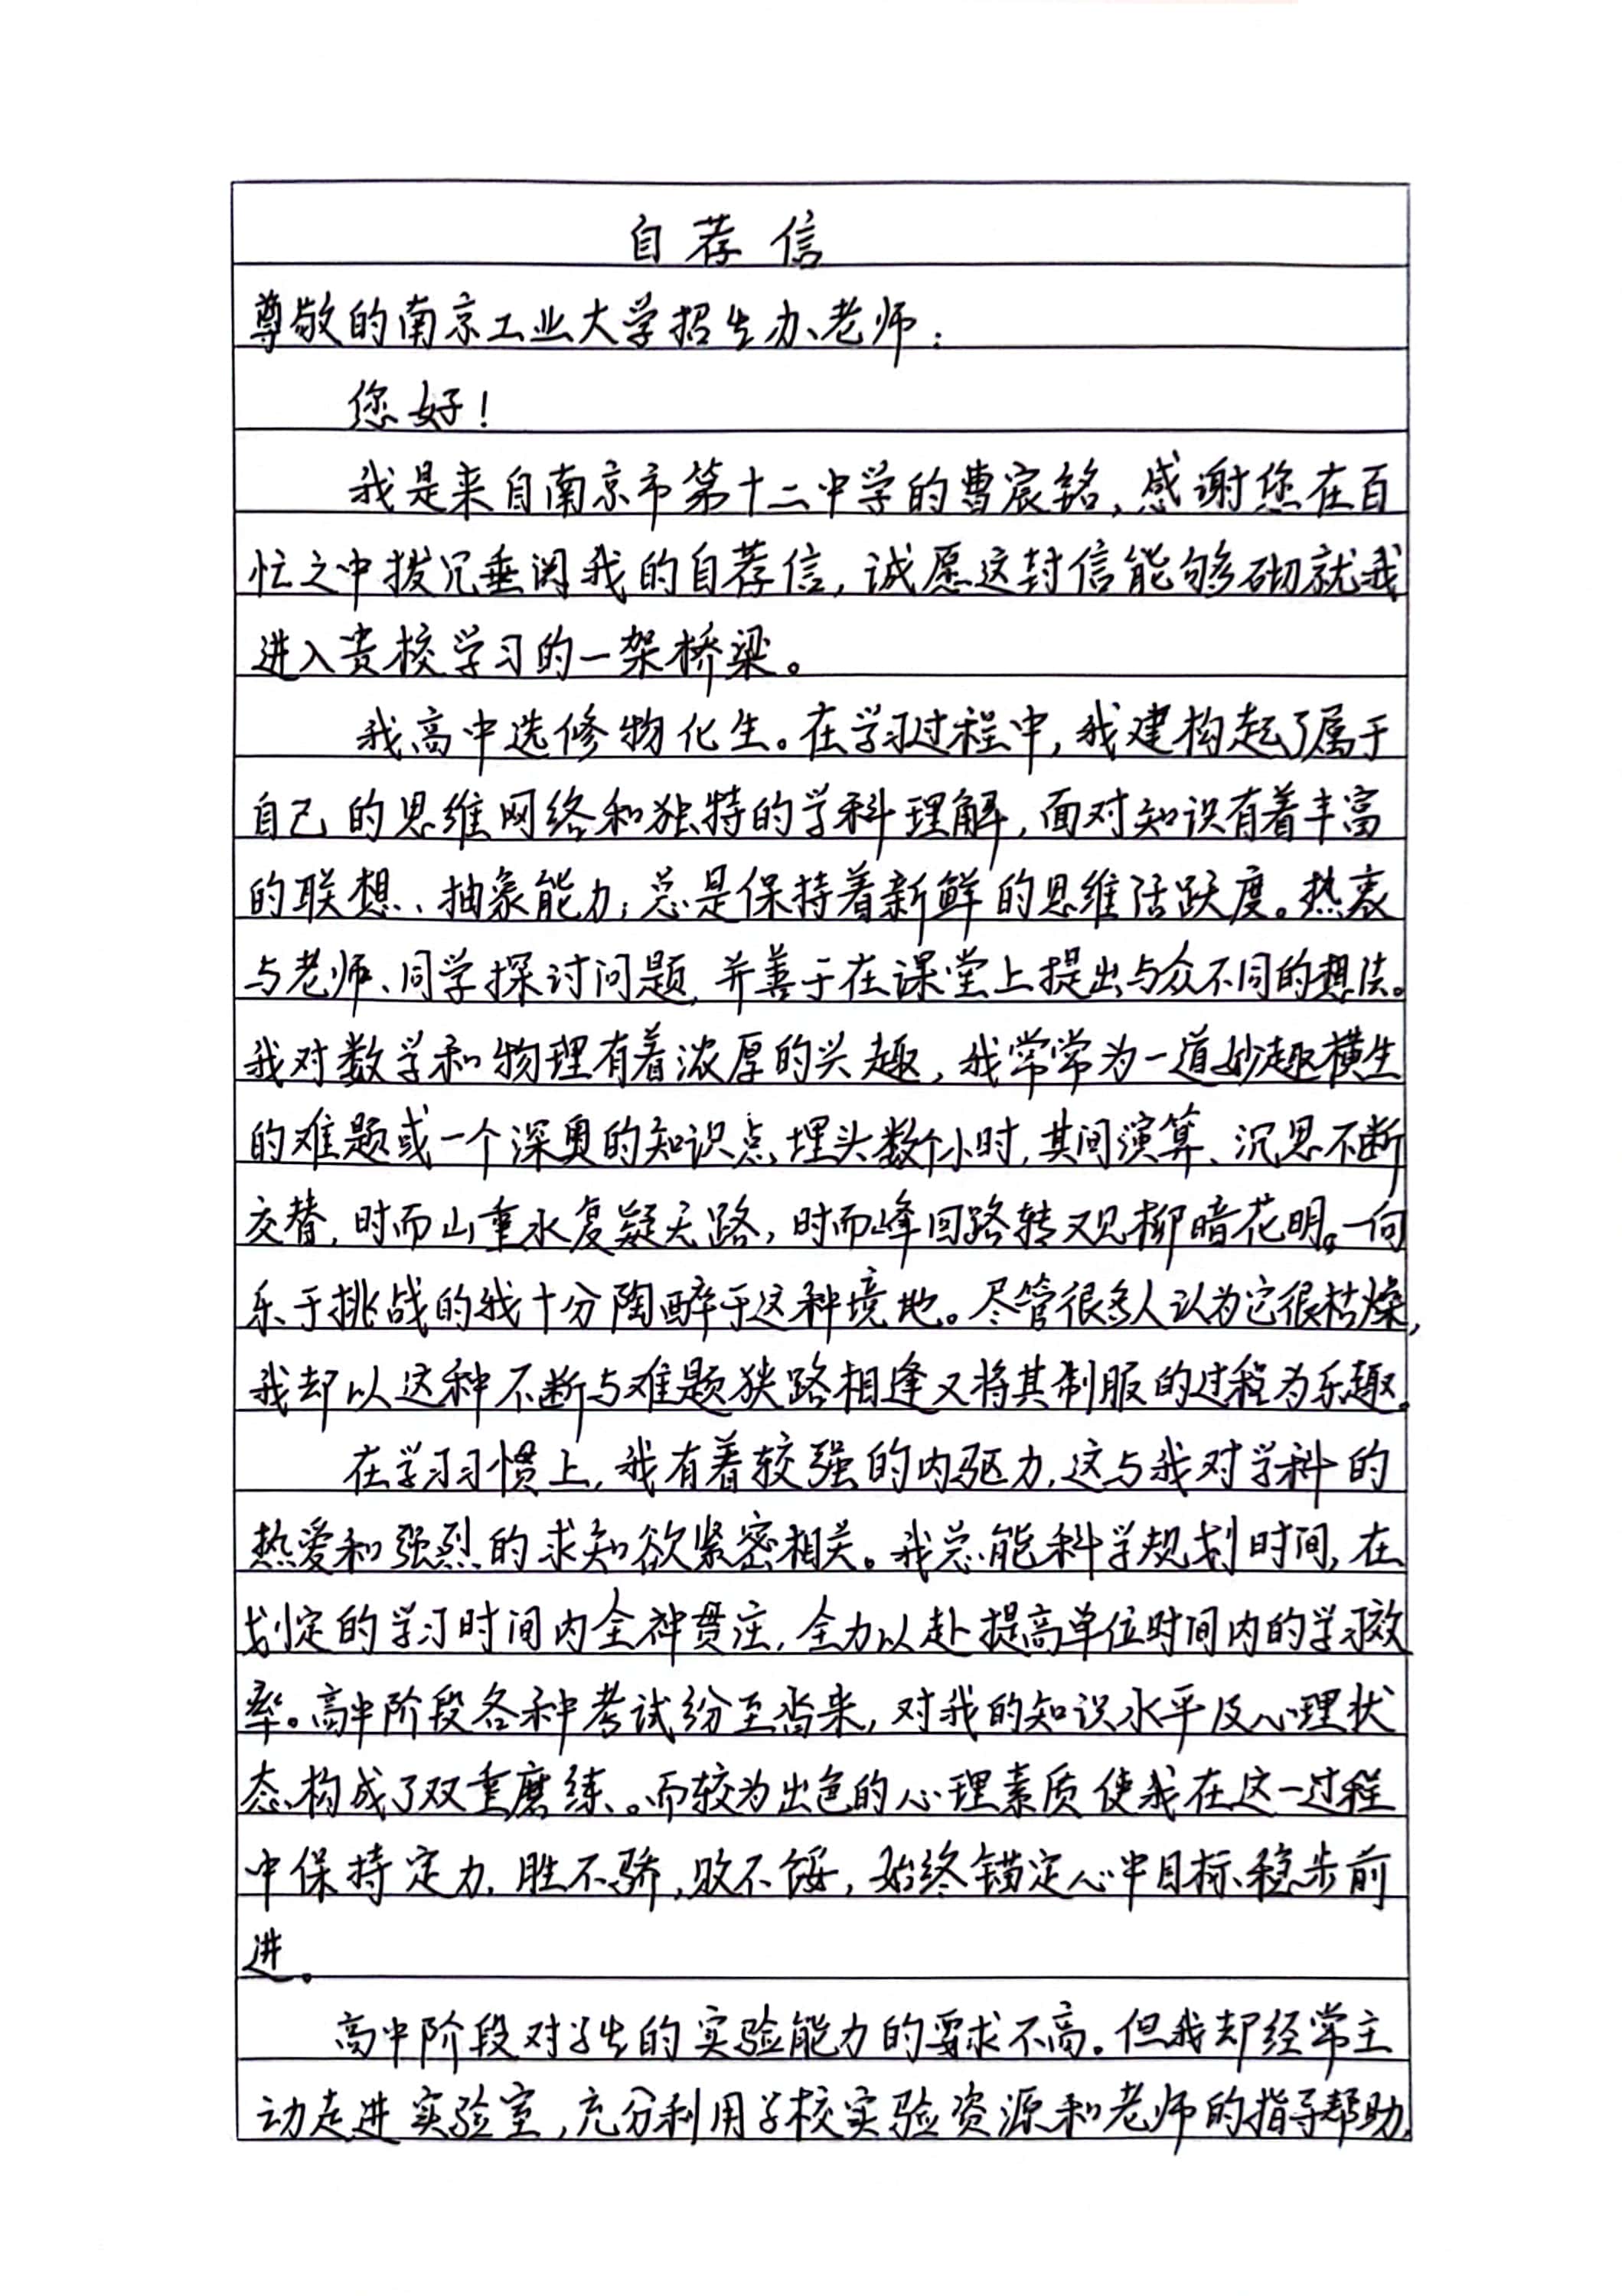 自荐信
尊敬的南京工业大学招生办老师：
您好！
我是来自南京市第十二中学的曹宸铭，感谢您在百
忙之中拨冗垂阅我的自荐信，诚愿这封信能够砌就我
进入贵校学习的一架桥梁。
我高中选修物化生。在学习过程中，我建构起了属于
自己的思维网络和独特的学科理解，面对知识有着丰富
的联想、抽象能力；总是保持着新鲜的思维活跃度。热衷
与老师、同学探讨问题，并善于在课堂上提出与众不同的想法。
我对数学和物理有着浓厚的兴趣，我常常为一道妙趣横生
的难题或一个深奥的知识点埋头数个小时，其间演算、沉思不断
交替，时而山重水复疑无路，时而峰回路转又见柳暗花明。一向
乐于挑战的我十分陶醉于这种境地。尽管很多人认为它很枯燥，
我却以这种不断与难题狭路相逢又将其制服的过程为乐趣。
在学习习惯上，我有着较强的内驱力，这与我对学科的
热爱和强烈的求知欲紧密相关。我总能科学规划时间，在
划定的学习时间内全神贯注，全力以赴提高单位时间内的学习效
率。高中阶段各种考试纷至沓来，对我的知识水平及心理状
态构成了双重磨练。而较为出色的心理素质使我在这一过程
中保持定力，胜不骄，败不馁，始终锚定心中目标稳步前
进。
高中阶段对学生的实验能力的要求不高。但我却经常主
动走进实验室，充分利用学校实验资源和老师的指导帮助，